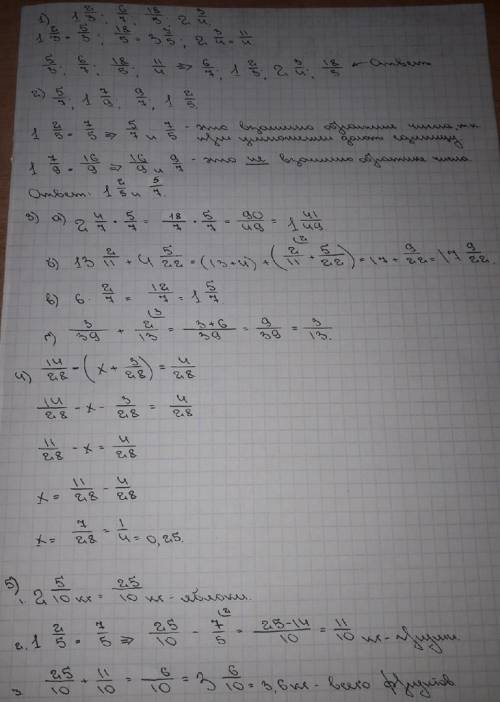 1) 1 2/5; 6/7; 18/5; 2 3/4
1 2/5 = 5/5; 18/5 = 3 3/5; 2 3/4 = 11/4
5/5; 6/7; 18/5; 11/4 ⇒ 6/7; 1 2/5; 2 3/4; 18/5 ← Ответ
2) 5/7; 1 7/9; 9/7; 1 2/5.
1 2/5 = 7/5 ⇒ 5/7 и 7/5 - это взаимно обратные числа, т.к. при умножении дают единицу
1 7/9 = 16/9 ⇒ 16/9 и 9/7 - это не взаимно обратные числа
Ответ: 1 2/5 и 5/7.
3) а) 2 4/7 · 5/7 = 18/7 · 5/7 = 90/49 = 1 41/49
б) 13 2/11 + 4 5/22 = (13+4) + (2/11 (2 + 5/22) = 17 + 9/22 = 17 9/22.
в) 6 · 2/7 = 12/7 = 1 5/7.
г) 3/39 + 2/13 (3 = 3+6/39 = 9/39 = 3/13.
4) 14/28 - (x + 3/28) = 4/28
14/28 - x - 3/28 = 4/28
11/28 - x = 4/28
x = 11/28 - 4/28
x = 7/28 = 1/4 = 0,25.
5)
1. 2 5/10 кг = 25/10 кг - яблоки.
2. 1 2/5 = 7/5 ⇒ 25/10 - 7/5 (2 = 25-14/10 = 11/10 кг - груши.
3 25/10 + 11/10 = 6/10 = 3 6/10 = 3,6 кг - всего фруктов